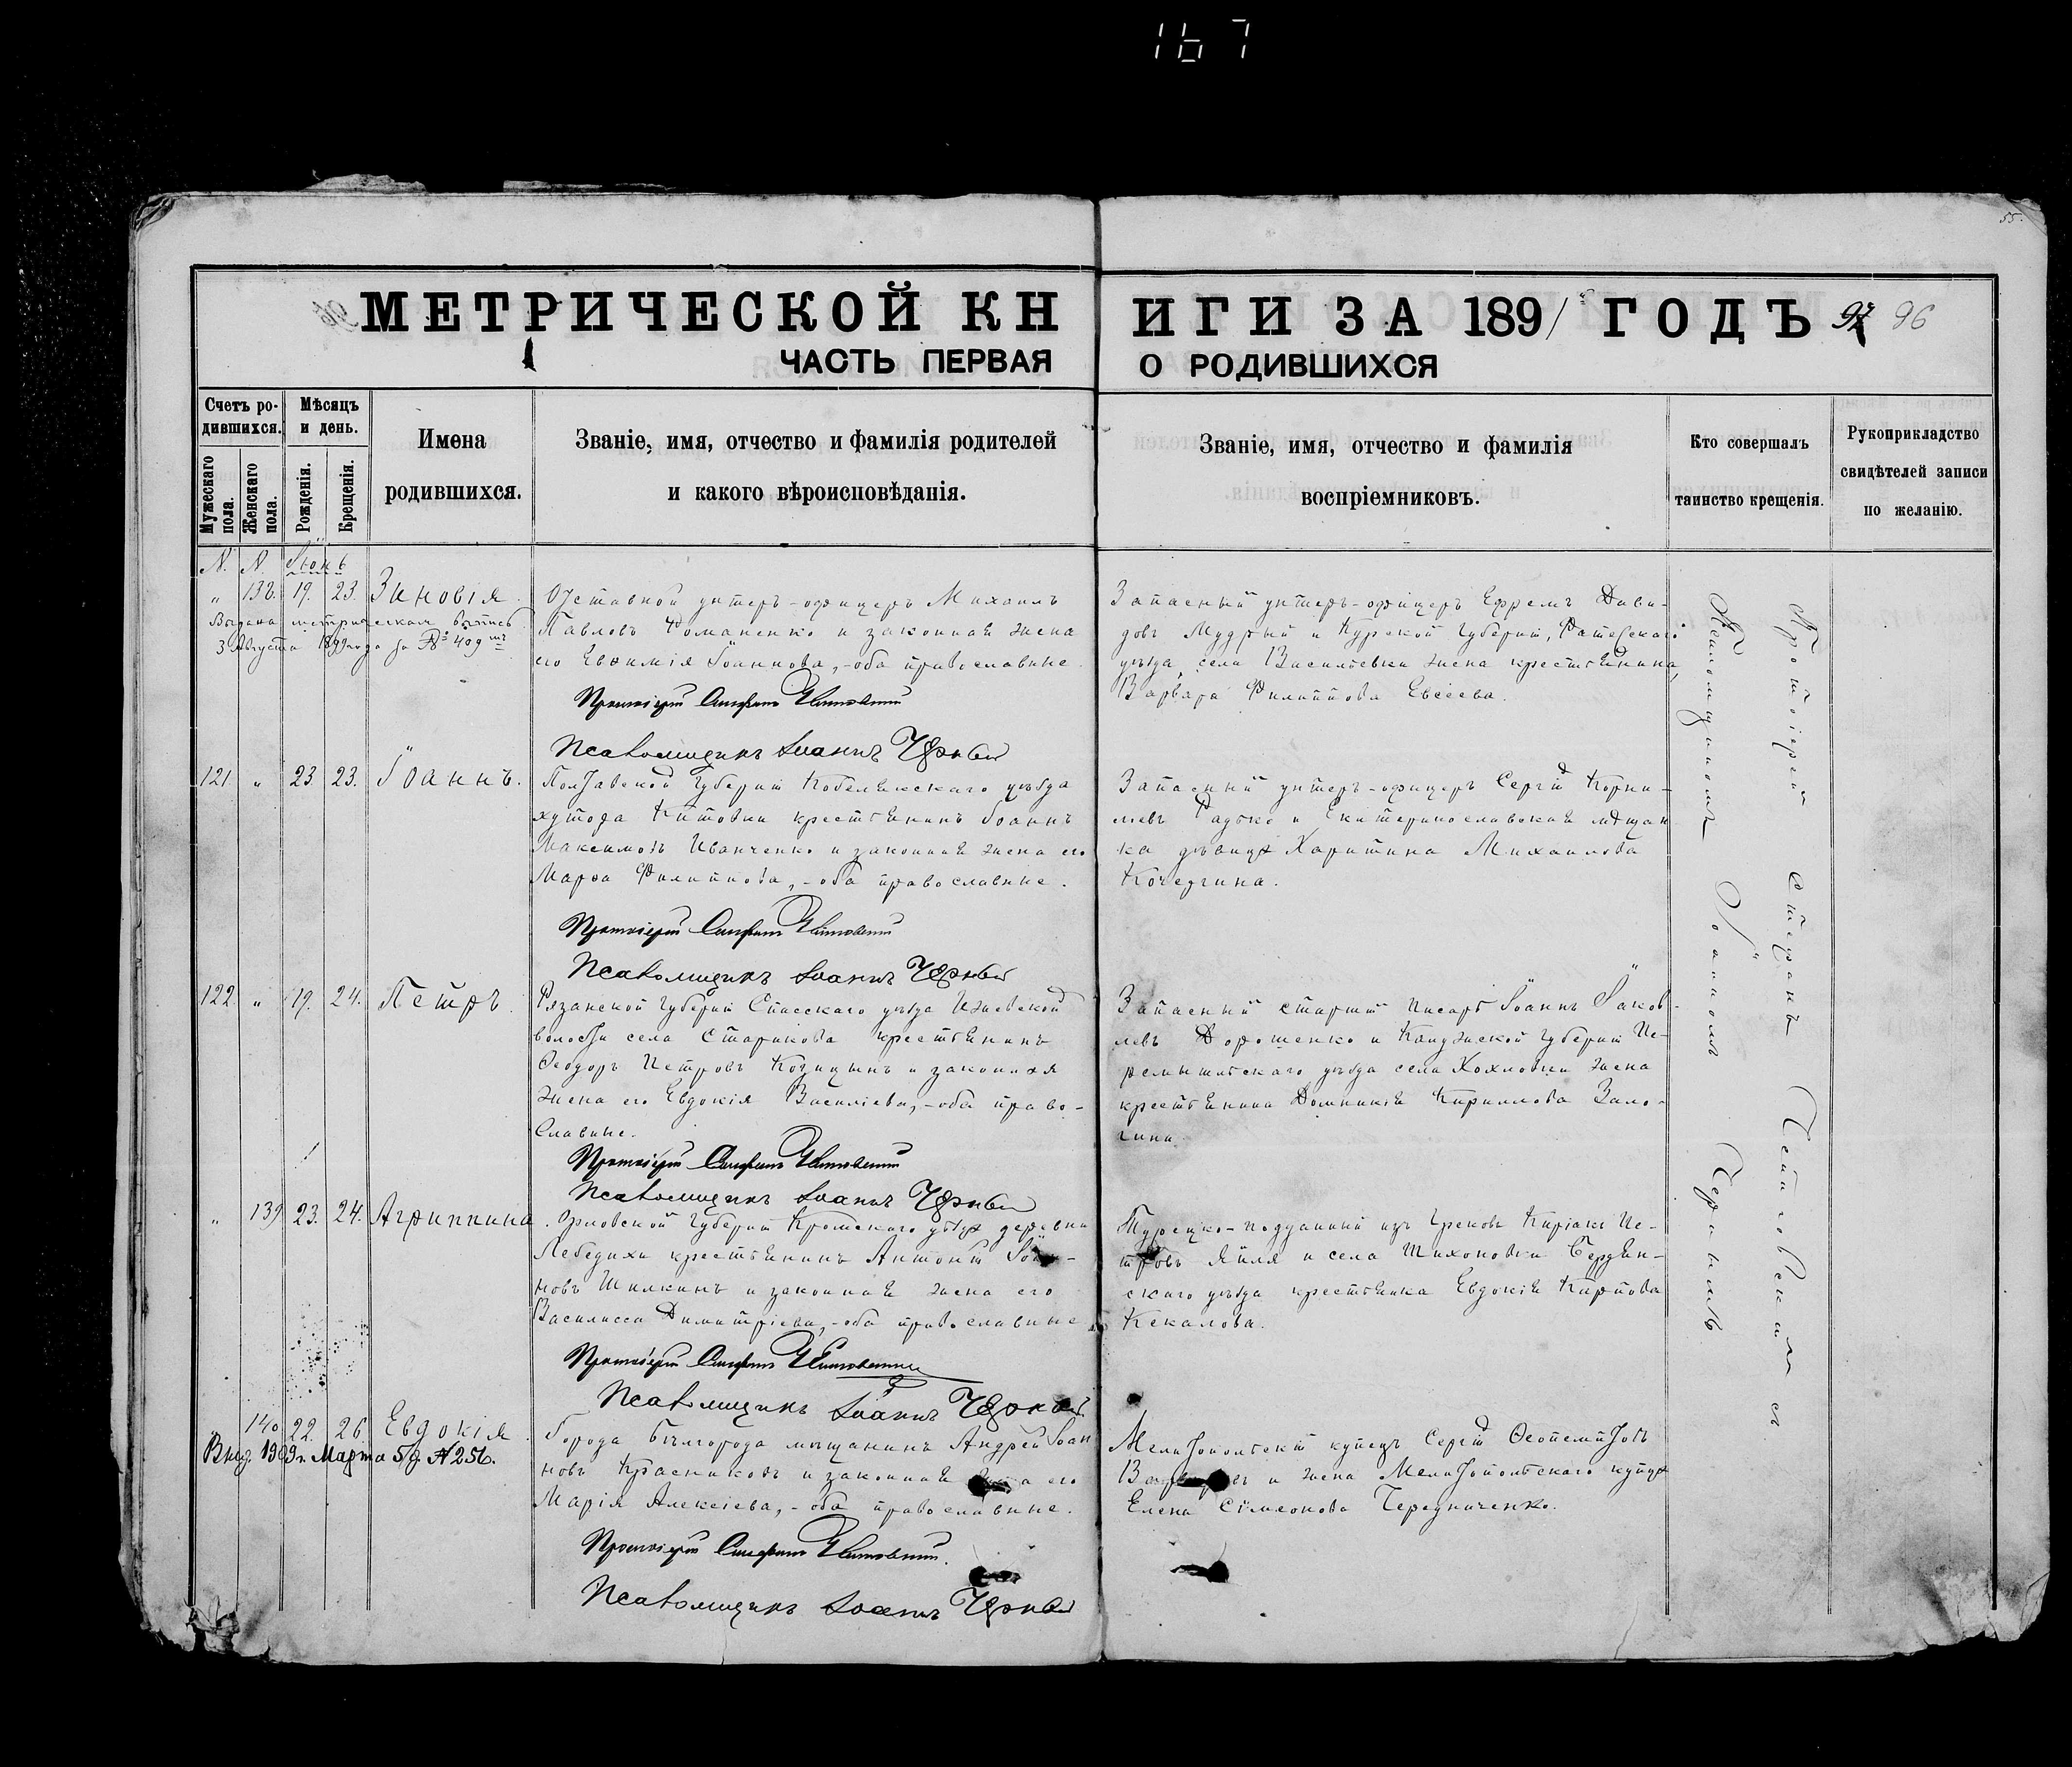 167
55.
МЕТРИЧЕСКОЙ КНИГИ ЗА 1891 ГОДЪ 96
ЧАСТЬ ПЕРВАЯ О РОДИВШИХСЯ
Счетъ родившихся.
Мужескаго пола.
Женскаго пола.
Мѣсяцъ и день.
Рожденія.
Крещенія.
Имена
родившихся.
Званіе, имя, отчество и фамилія родителей
и какого вѣроисповѣданія.
Званіе, имя, отчество и фамилія
воспріемниковъ.
Кто совершалъ
таинство крещенія.
Рукоприкладство
свидѣтелей записи
по желанію.
N. N. Іюнь
" 138. 19. 23. Зиновія.
Выдана метрическая выпись
3 Августа 1899 года за № 409
Отставной унтеръ-офицеръ Михаилъ
Павловъ Романенко и законная жена
его Евѳимія Іоаннова,-оба православные.
Протоіерей Стефанъ
Псаломщикъ Іоаннъ
Запасный унтеръ-офицеръ Ефремъ Дави-
довъ Мудрый и Курской губерніи, Фатежскаго
уѣзда, села Васильевки жена крестьянина,
Варвара Филиппова Евсеева.
121 " 23 23. Іоаннъ.
Полтавской губерніи Кобелякскаго уѣзда
хутора Китовки крестьянинъ Іоаннъ
Максимовъ Иванченко и законная жена его
Марѳа Филиппова,-оба православные.
Протоіерей Стефанъ
Псаломщикъ Іоаннъ
Запасный унтеръ-офицеръ Сергій Корни-
лievъ Радько и Екатеринославская мѣщан
ка дѣвица Харитина Михаилова
Кочергина.
122. " 19. 24. Петръ.
Рязанской губерніи Спасскаго уѣзда Ижевской
волости села Старикова крестьянинъ
Ѳеодоръ Петровъ Козицынъ и законная
жена его Евдокія Василіева,-оба право-
славные.
Протоіерей Стефанъ
Псаломщикъ Іоаннъ
Запасный старшій писарь Іоаннъ Іаков-
левъ Дорошенко и Калужской губерніи Пе-
ремышльскаго уѣзда села Хохловки жена
крестьянина Домникія Кириллова Зало-
гина.
" 139 23. 24. Агриппина.
Орловской губерніи Кромскаго уѣзда деревни
Лебедихи крестьянинъ Антоній Іоан-
новъ Шилкинъ и законная жена его
Василисса Димитріева,-оба православные
Протоіерей Стефанъ
Псаломщикъ Іоаннъ
Турецко-подданный изъ Грековъ Киріакъ Пе-
тровъ Яйля и села Шиховки Бердян-
скаго уѣзда крестьянка Евдокія Карпова
Кекалова.
140 22. 26. Евдокія.
Выд. 1909 г. Марта 5/д. № 256.
Города Бѣлгорода мѣщанинъ Андрей Іоан
новъ Красниковъ и законная жена его
Марія Алексіева,-оба православные.
Протоіерей Стефанъ
Псаломщикъ Іоаннъ
Мелитопольскій купецъ Сергій Ѳеопемптовъ
и жена Мелитопольскаго купца
Елена Сімеонова Чередниченко.
Протоіерей Стефанъ
Псаломщикомъ Іоанномъ